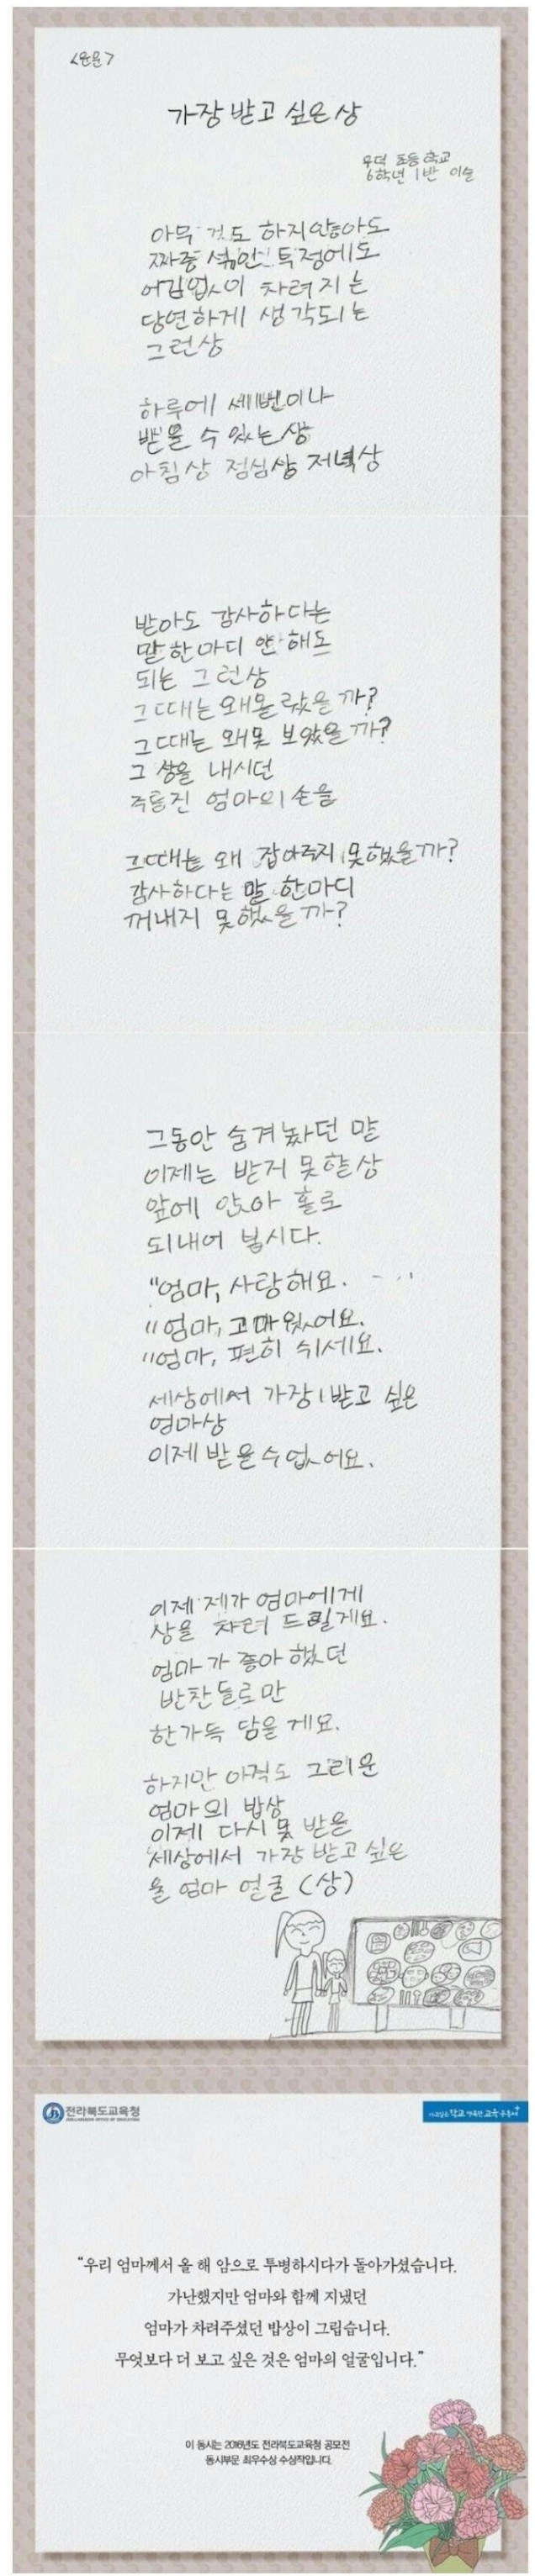 <운문>
가장 받고 싶은 상
우덕 초등학교
6학년 1반 이슬
아무 것도 하지 않아도
짜증 섞인 투정에도
어김없이 차려지는
당연하게 생각되는
그런상
하루에 세번이나
받을 수 있는 상
아침상 점심상 저녁상
받아도 감사하다는
말 한마디 안 해도
되는 그런상
그때는 왜 몰랐을까?
그때는 왜 못 보았을까?
그 상을 내시던
주름진 엄마의 손을
그때는 왜 잡아주지 못했을까?
감사하다는 말 한마디
꺼내지 못했을까?
그동안 숨겨놨던 말
이제는 받지 못할상
앞에 앉아 홀로
되내어 봅시다.
"엄마, 사랑해요. - ...
"엄마, 고마웠어요.
"엄마, 편히 쉬세요.
세상에서 가장 받고 싶은
엄마상
이제 받을수 없어요.
이제 제가 엄마에게
상을 차려 드릴게요.
엄마가 좋아했던
반찬들로만
한가득 담을게요.
하지만 아직도 그리운
엄마의 밥상
이제 다시 못 받을
세상에서 가장 받고 싶은
울 엄마 얼굴 (상)
전라북도교육청
JEOLLABUKDO OFFICE OF EDUCATION
"우리 엄마께서 올 해 암으로 투병하시다가 돌아가셨습니다.
가난했지만 엄마와 함께 지냈던
엄마가 차려주셨던 밥상이 그립습니다.
무엇보다 더 보고 싶은 것은 엄마의 얼굴입니다."
이 동시는 2016년도 전라북도교육청 공모전
동시부문 최우수상 수상작입니다.